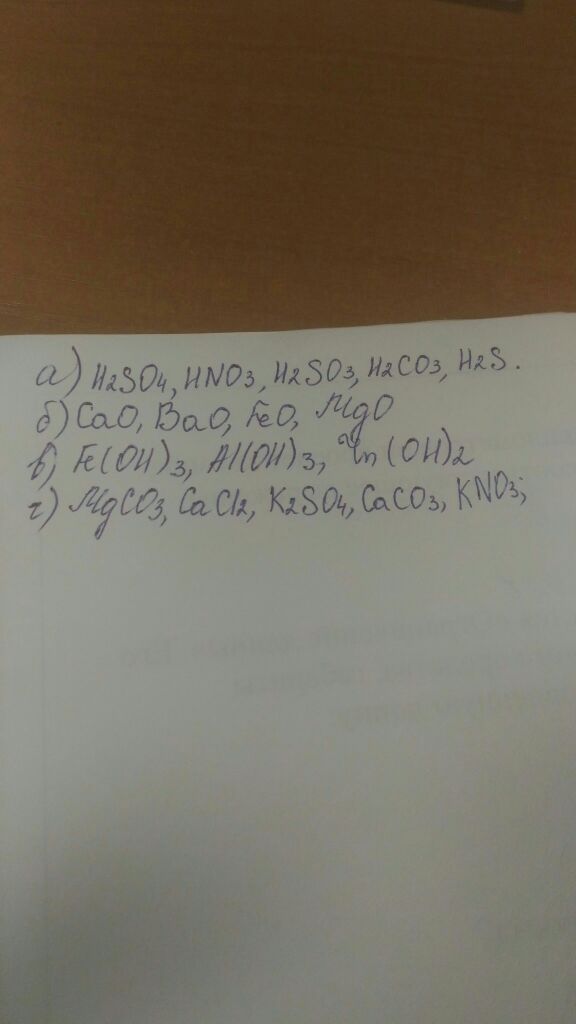 а) H2SO4, HNO3, H2SO3, H2CO3, H2S.
б) CaO, BaO, FeO, MgO
в) Fe(OH)3, Al(OH)3, Zn(OH)2
г) MgCO3, CaCl2, K2SO4, CaCO3, KNO3;